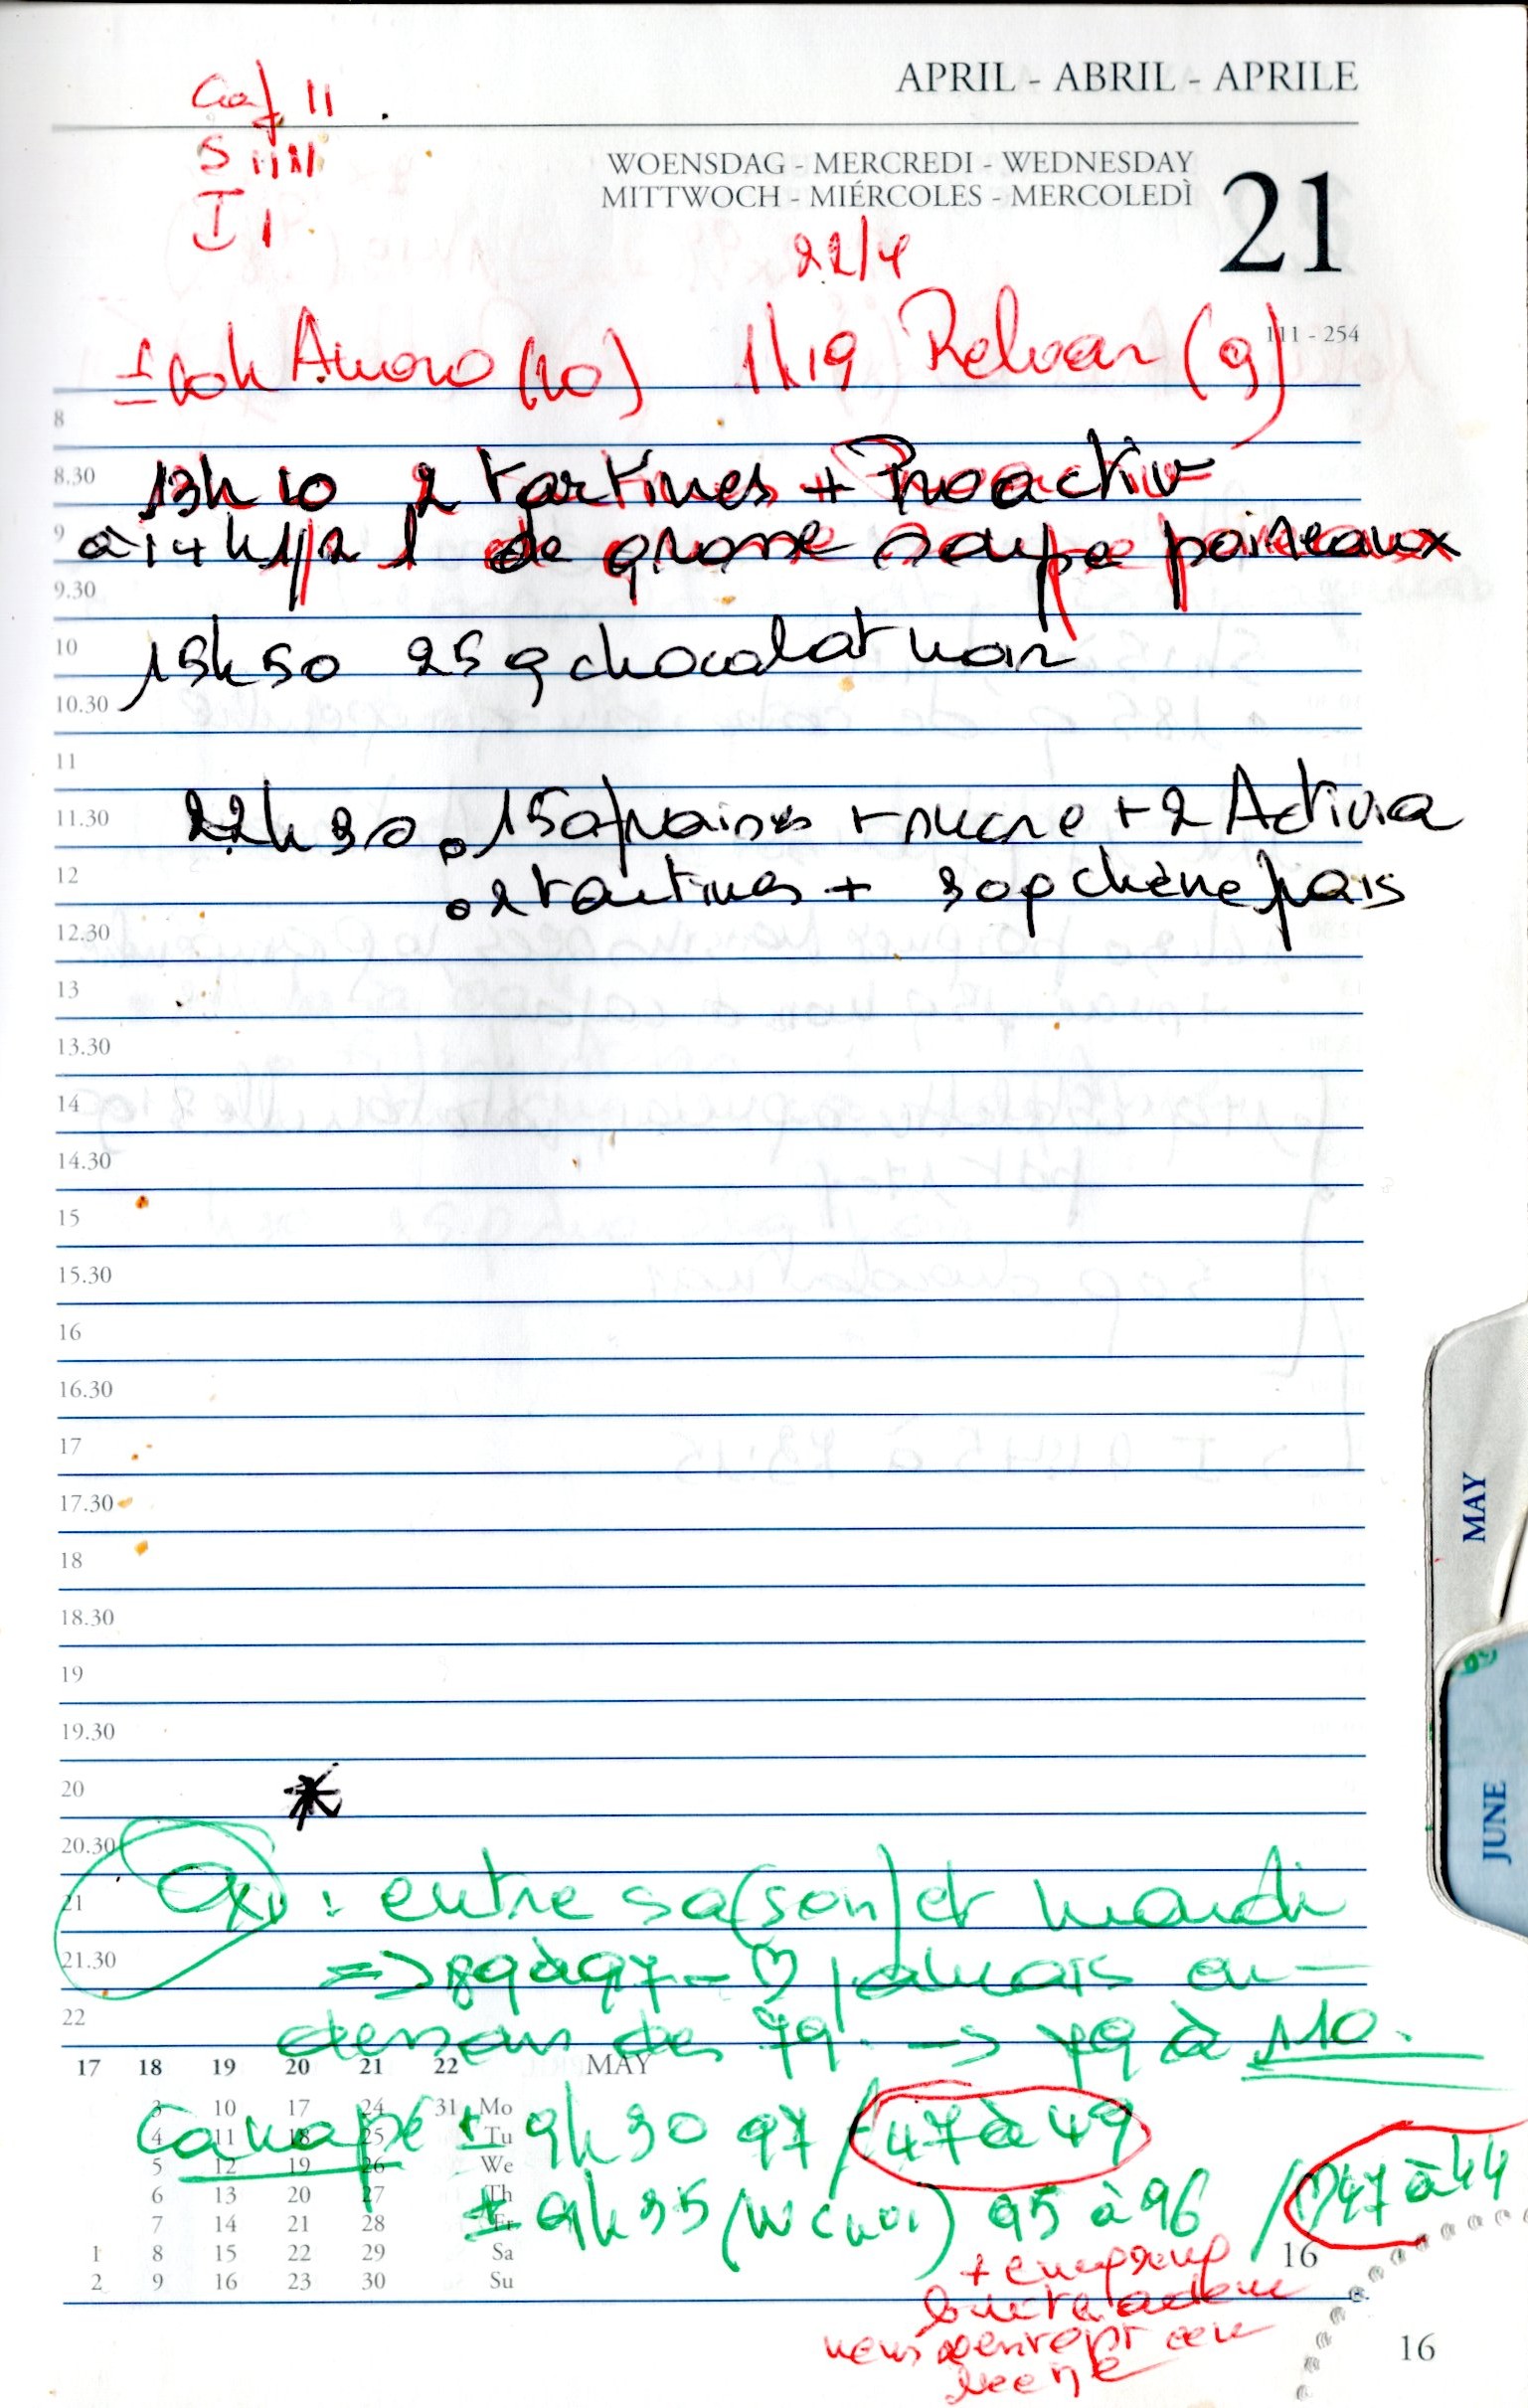 APRIL - ABRIL - APRILE
Caf II
S IIII
I I
WOENSDAG - MERCREDI - WEDNESDAY
MITTWOCH - MIÉRCOLES - MERCOLEDÌ
21
22/4
111 - 254
± 10h (10) 1h19 (9)
8
8.30 13h10 2 tartines + Proactiv
9 à 14h 1/2 l de grosse soupe poireaux
9.30
10 15h50 25g chocolat noir
10.30
11
11.30 22h30 . 150 fraises + sucre + 2 Activia
12 . 2 tartines + 30g chèvre frais
12.30
13
13.30
14
14.30
15
15.30
16
16.30
17
17.30
18
18.30
19
19.30
20 *
20.30
21 Oxy : entre sa(soir) et mardi
21.30 => 89 à 97 - ♡ jamais au-
22 dessous des 79 -> 79 à 110.
17 18 19 20 21 22 MAY
3 10 17 24 31 Mo
Canapé ± 9h30 97 / 47 à 49
4 11 18 25 Tu
5 12 19 26 We
6 13 20 27 Th
± 9h35 (WC) 95 à 96 / ♡ 47 à 44
7 14 21 28 Fr
1 8 15 22 29 Sa
16
2 9 16 23 30 Su
+
16
MAY
JUNE